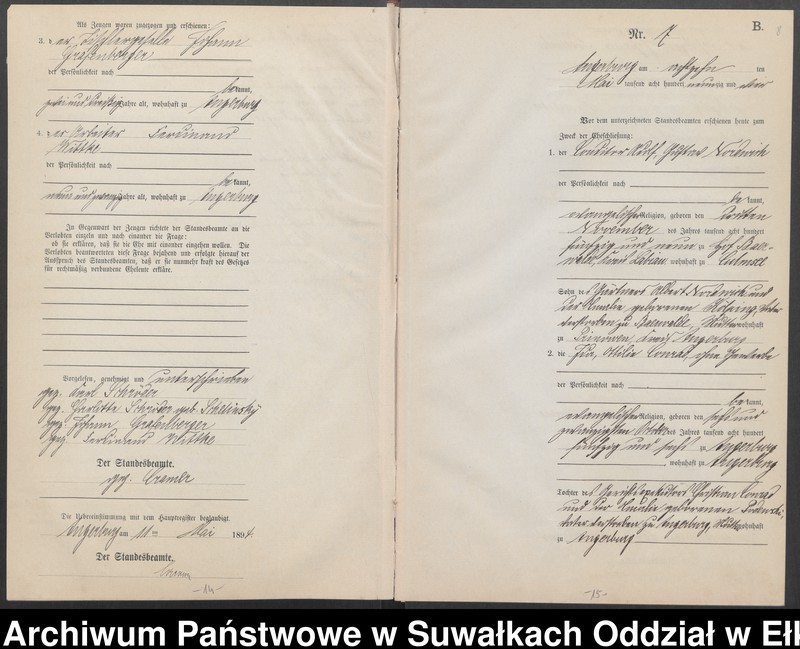 Als Zeugen waren zugezogen und erschienen:
3. der Tischlergeselle Johann
Grafenberger
der Persönlichkeit nach
bekannt,
zwei und dreißig Jahre alt, wohnhaft zu Angerburg
4. der Arbeiter Ferdinand
Wittke
der Persönlichkeit nach
bekannt,
neun und zwanzig Jahre alt, wohnhaft zu Angerburg
In Gegenwart der Zeugen richtete der Standesbeamte an die
Verlobten einzeln und nach einander die Frage:
ob sie erklären, daß sie die Ehe mit einander eingehen wollen. Die
Verlobten beantworteten diese Frage bejahend und erfolgte hierauf der
Ausspruch des Standesbeamten, daß er sie nunmehr kraft des Gesetzes
für rechtmäßig verbundene Eheleute erkläre.
Vorgelesen, genehmigt und unterschrieben
gez. Karl Schröder
gez. Charlotte Schröder geb.
gez. Johann Grafenberger
gez. Ferdinand Wittke
Der Standesbeamte.
gez.
Die Uebereinstimmung mit dem Hauptregister beglaubigt.
Angerburg am 11ten Mai 1894.
Der Standesbeamte.
-14-
B.
8
Nr. 7
Angerburg am achtzehn ten
Mai tausend acht hundert neunzig und vier
Vor dem unterzeichneten Standesbeamten erschienen heute zum
Zweck der Eheschließung:
1. der Conditor Adolf, Gustav
der Persönlichkeit nach
bekannt,
evangelischer Religion, geboren den dritten
November des Jahres tausend acht hundert
fünfzig und neun zu
Kreis Labiau, wohnhaft zu Culmsee
Sohn des Gärtners Albert und
der Amalie geborenen Vater
verstorben zu Mutter wohnhaft
zu Kreis Angerburg
2. die Ida, Ottilie Conrad, ohne Gewerbe
der Persönlichkeit nach
bekannt,
evangelischer Religion, geboren den sechs und
zwanzigsten Oktober des Jahres tausend acht hundert
fünfzig und sechs zu Angerburg
, wohnhaft zu Angerburg
Tochter des Christian Conrad
und der Amalie geborenen
Vater verstorben zu Angerburg, Mutter wohnhaft
zu Angerburg
-15-
Archiwum Państwowe w Suwałkach Oddział w Ełk